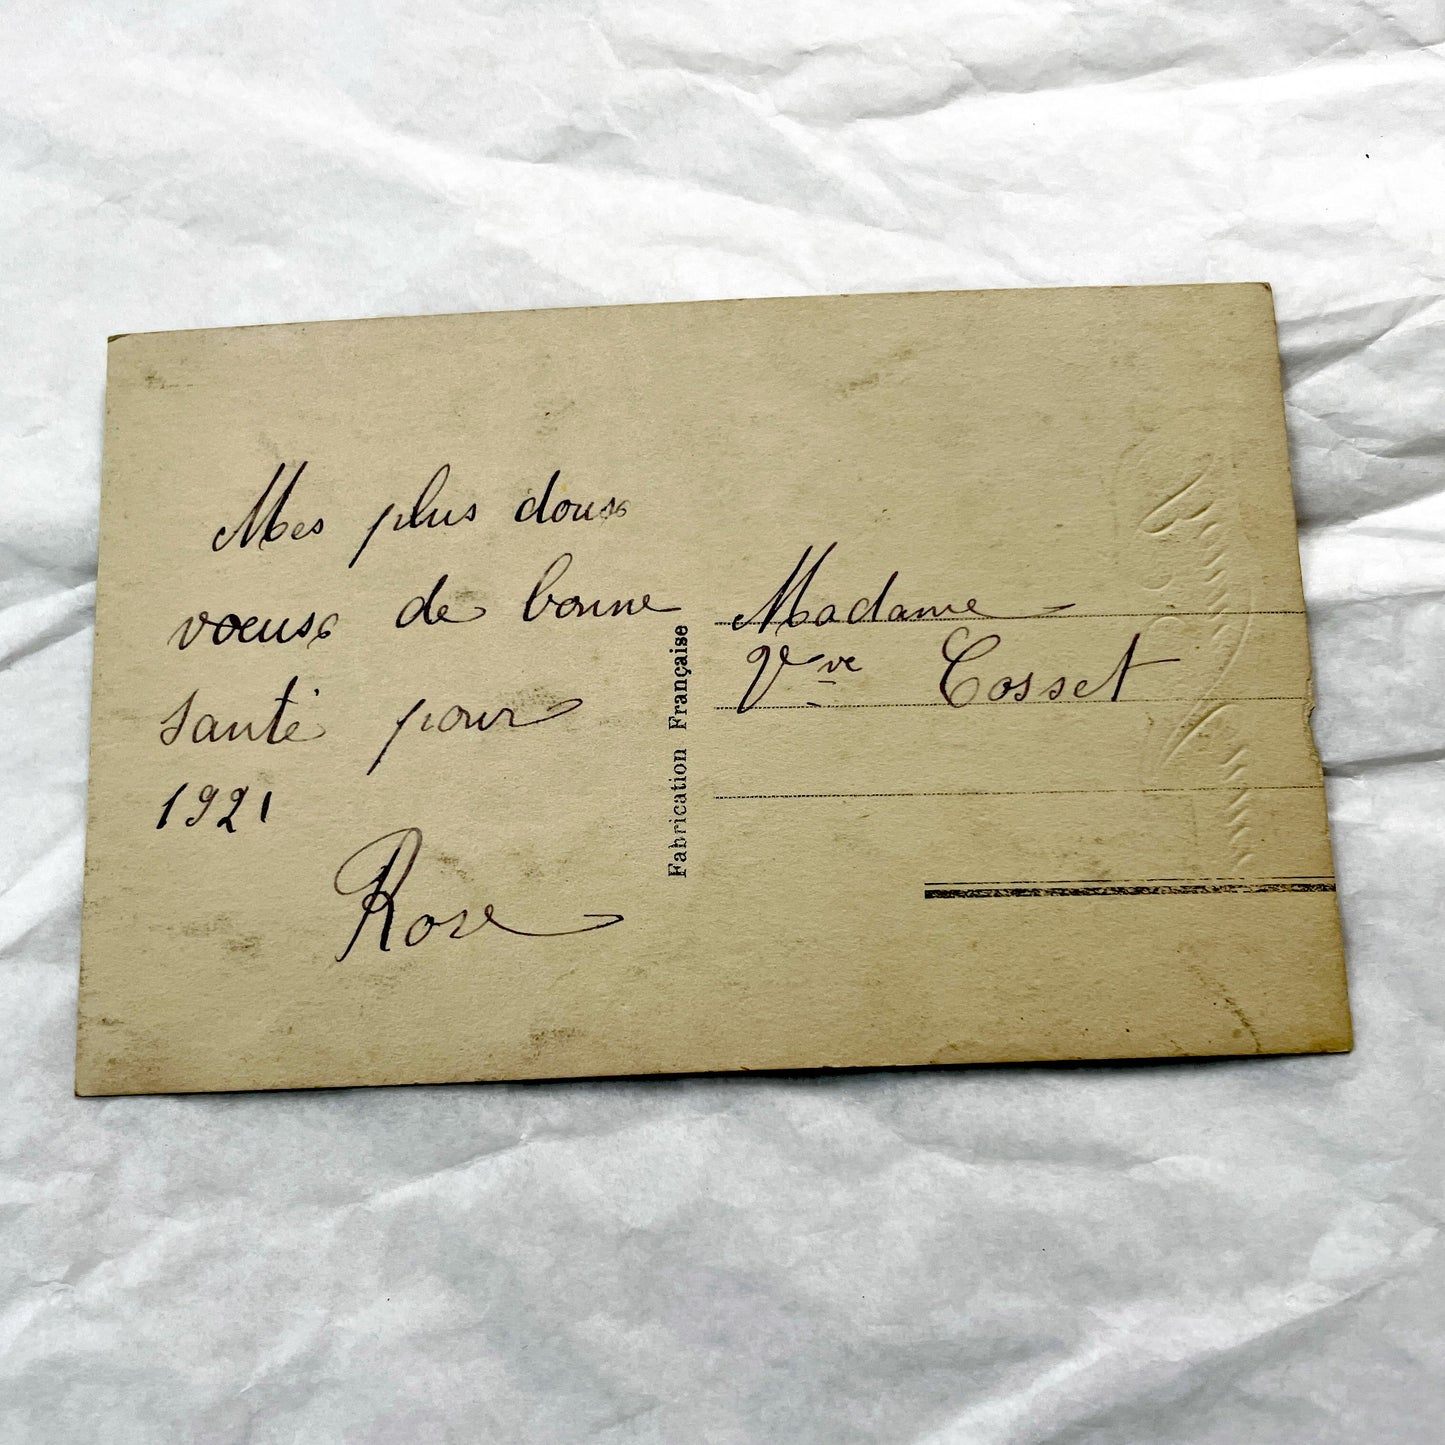 Mes plus doux
vœux de bonne
santé pour
1921
Rose
Fabrication Française
Madame
Vve Cosset
Bonne Année